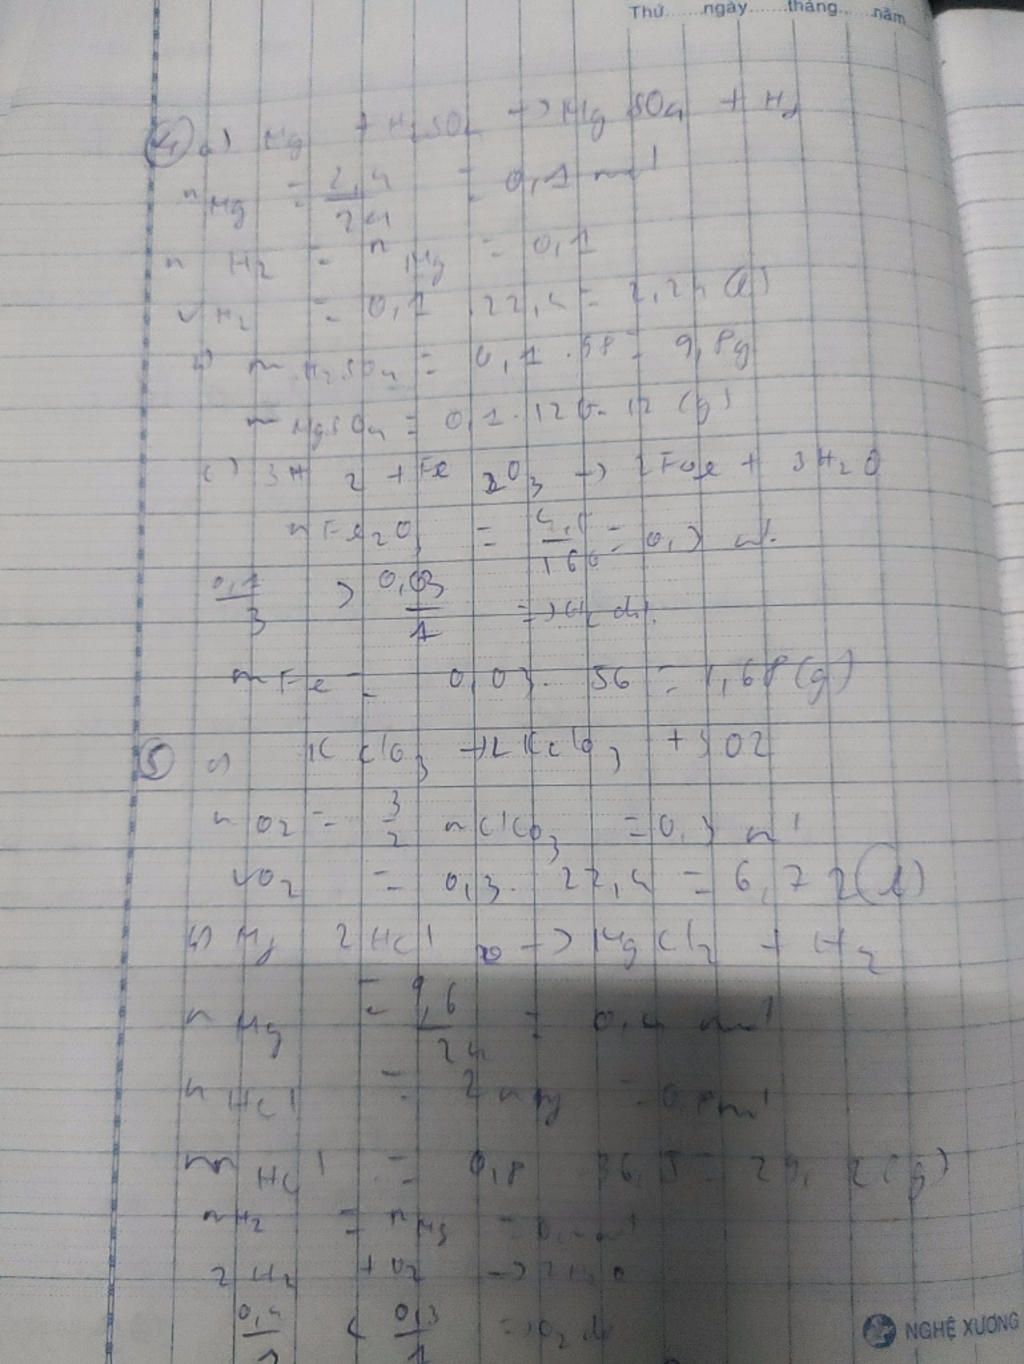 Thứ......ngày.......tháng......năm
④ a) Mg + H2SO4 → MgSO4 + H2
nMg = 2,4/24 = 0,1 mol
n H2 = nMg = 0,1
VH2 = 0,1 . 22,4 = 2,24 (l)
b) m H2SO4 = 0,1 . 98 = 9,8g
m MgSO4 = 0,1 . 120 = 12 (g)
c) 3H2 + Fe2O3 → 2Fe + 3H2O
nFe2O3 = 4,8/160 = 0,3 mol
0,1/3 > 0,03/1 => H2 dư
mFe = 0,03 . 56 = 1,68 (g)
⑤ a) KClO3 → 2KClO3 + 3O2
nO2 = 3/2 nKClO3 = 0,3 mol
VO2 = 0,3 . 22,4 = 6,72 (l)
b) Mg 2HCl → MgCl2 + H2
nMg = 9,6/24 = 0,4 mol
nHCl = 2nMg = 0,8 mol
mHCl = 0,8 36,5 = 29,2 (g)
nH2 = nMg = 0,4 mol
2H2 + O2 → 2H2O
0,4/2 < 0,3/1 => O2 dư
NGHỆ XƯƠNG